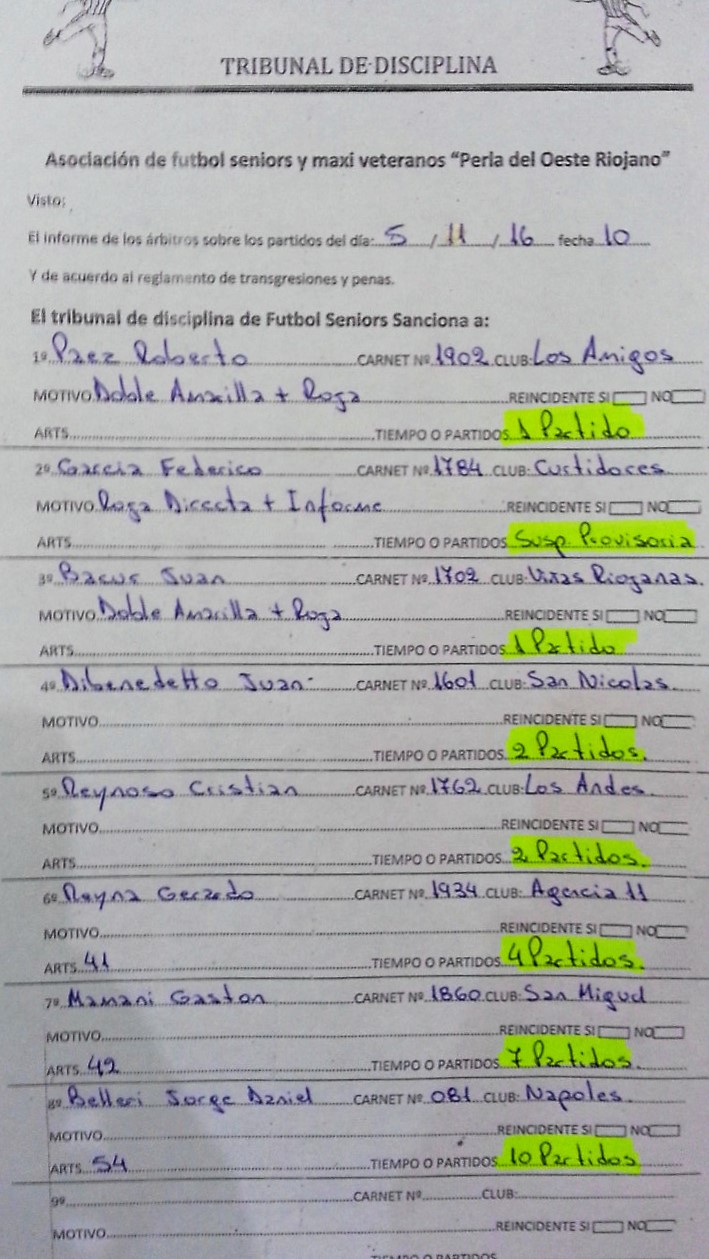 TRIBUNAL DE DISCIPLINA
Asociación de futbol seniors y maxi veteranos "Perla del Oeste Riojano"
Visto:
El informe de los árbitros sobre los partidos del día: 5 / 11 / 16 fecha 10
Y de acuerdo al reglamento de transgresiones y penas.
El tribunal de disciplina de Futbol Seniors Sanciona a:
1º Paez Roberto CARNET Nº 1902 CLUB: Los Amigos
MOTIVO Doble Amarilla + Roga REINCIDENTE SI NO
ARTS. TIEMPO O PARTIDOS 1 Partido
2º Garcia Federico CARNET Nº 1784 CLUB: Curtidores
MOTIVO Roga Directa + Informe REINCIDENTE SI NO
ARTS. TIEMPO O PARTIDOS Susp. Provisoria
3º Bacus Juan CARNET Nº 1702 CLUB: Viñas Rioganas.
MOTIVO Doble Amarilla + Roga REINCIDENTE SI NO
ARTS. TIEMPO O PARTIDOS 1 Partido
4º Dibenedetto Juan CARNET Nº 1601 CLUB: San Nicolas.
MOTIVO REINCIDENTE SI NO
ARTS. TIEMPO O PARTIDOS 2 Partidos.
5º Reynoso Cristian CARNET Nº 1762 CLUB: Los Andes.
MOTIVO REINCIDENTE SI NO
ARTS. TIEMPO O PARTIDOS 2 Partidos.
6º Reyna Gerardo CARNET Nº 1934 CLUB: Agencia 11
MOTIVO REINCIDENTE SI NO
ARTS. 41 TIEMPO O PARTIDOS 4 Partidos.
7º Mamani Gaston CARNET Nº 1860 CLUB: San Miguel
MOTIVO REINCIDENTE SI NO
ARTS. 42 TIEMPO O PARTIDOS 7 Partidos.
8º Belleri Jorge Daniel CARNET Nº 081 CLUB: Napoles.
MOTIVO REINCIDENTE SI NO
ARTS. 54 TIEMPO O PARTIDOS 10 Partidos
9º CARNET Nº CLUB:
MOTIVO REINCIDENTE SI NO
TIEMPO O PARTIDOS